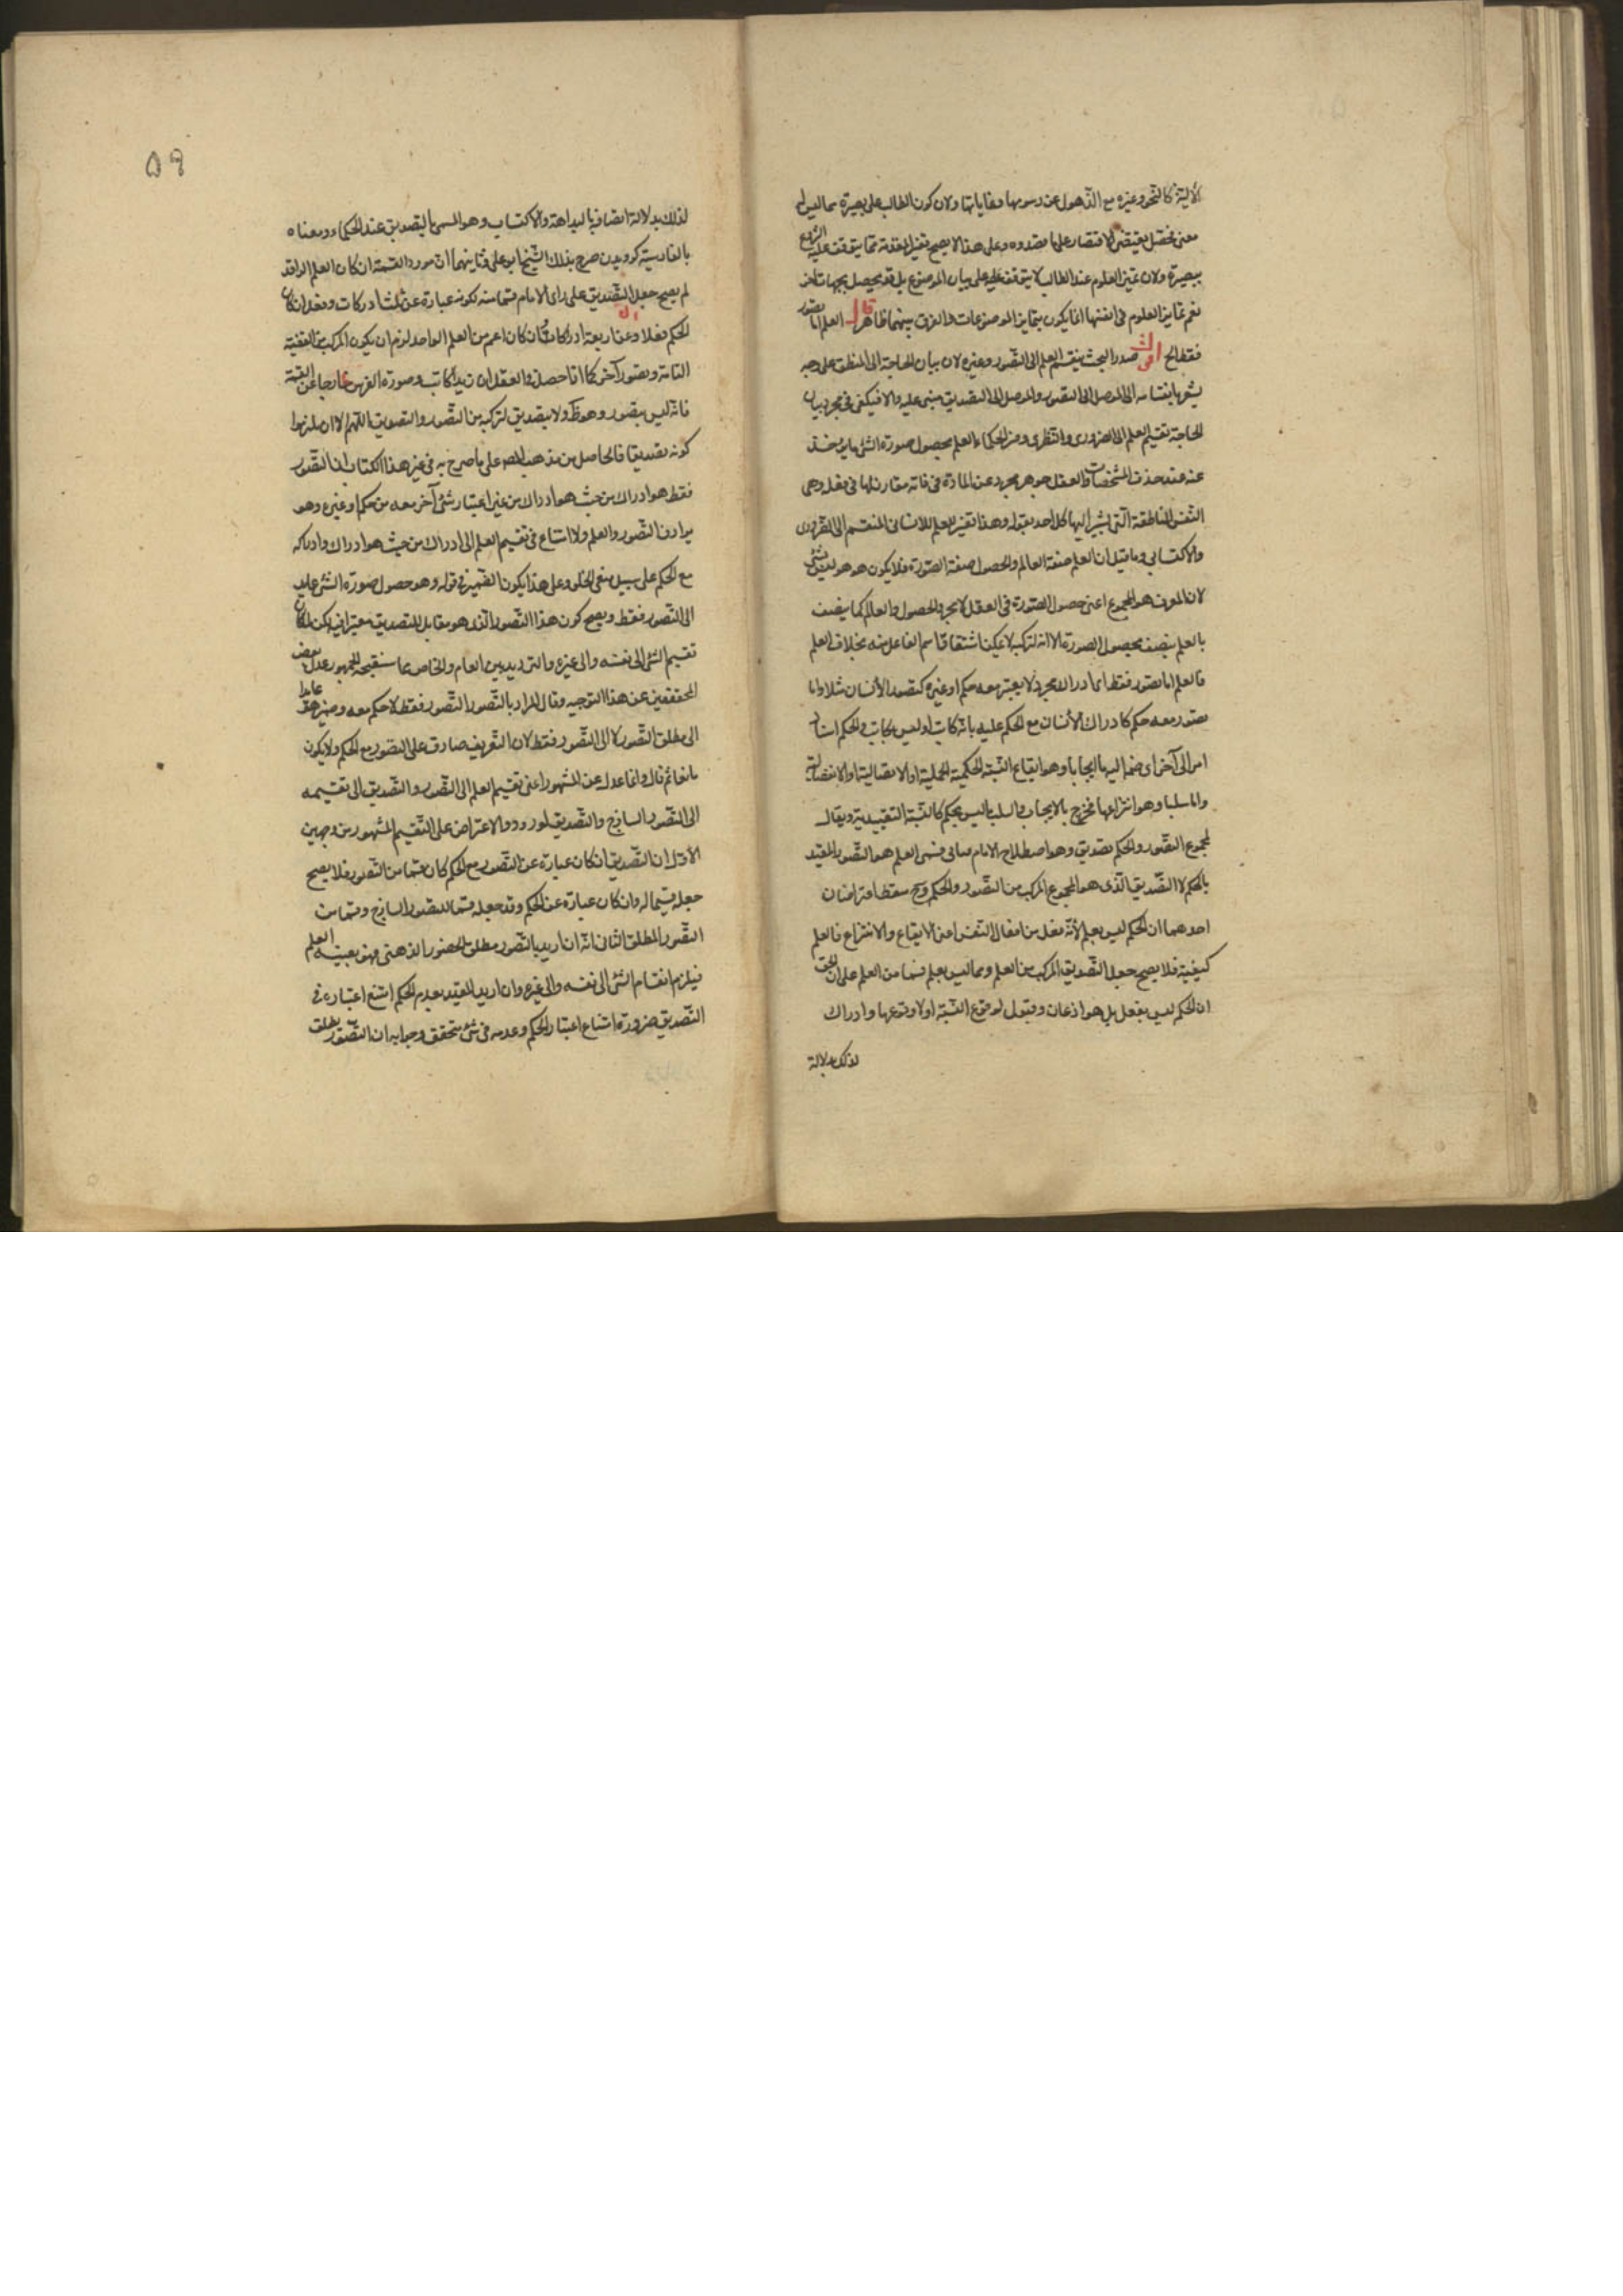 الآلية كالنحو وغيره مع الذهول عن رسومها وغاياتها ولان كون الطالب على بصيرة مما ليس له
معنى محصل يقتضى الاقتصار على ما حددوه وعلى هذا لا يصح تفسير المقدمة بما يتوقف عليه الشروع
ببصيرة ولان تميز العلوم عند الطالب لا يتوقف على بيان الموضوع بل قد يحصل بجهات اخر
نعم تمايز العلوم فى انفسها انما يكون بتمايز الموضوعات والفرق بينهما ظاهر قال العلم اما تصور
فقط الخ اقول صدر البحث بتقسيم العلم الى التصور وغيره لان بيان الحاجة الى المنطق على وجه
يشعر بانقسامه الى الموصل الى التصور والموصل الى التصديق مبنى عليه والا فيكفى فى مجرد بيان
الحاجة تقسيم العلم الى الضرورى والنظرى وفسر الحكماء العلم بحصول صورة الشئ ما يؤخذ
عنه عند حذف المشخصات والعقل جوهر مجرد عن المادة فى ذاته مقارن لها فى فعله وهى
النفس الناطقة التى يشير اليها كل احد بقوله وهذا تفسير للعلم الانسانى المنقسم الى الضرورى
والاكتسابى وما قيل ان العلم صفة العالم والحصول صفة الصورة فلا يكون هو هو ليس بشئ
لان المعرف هو المجموع اعنى حصول الصورة فى العقل لا مجرد الحصول والعالم كما يتصف
بالعلم يتصف بحصول الصورة الا انه لتركبه لا يمكن اشتقاق اسم الفاعل منه بخلاف العلم
فالعلم اما تصور فقط اى ادراك مجرد لا يعتبر معه حكم او غيره كتصور الأنسان مثلا واما
تصور معه حكم كادراك الأنسان مع الحكم عليه بانه كاتب او ليس بكاتب والحكم اسناد
امر الى آخر اى ضم اليها ايجابا وهو ايقاع النسبة الحكمية الحملية او الاتصالية او الانفصالية
واما سلبا وهو انتزاعها فخرج بالايجاب والسلب ما ليس بحكم كالنسبة التقييدية ويقال
لمجموع التصور والحكم تصديق وهو اصطلاح الامام فثانى قسمى العلم هو التصور المقيد
بالحكم لا التصديق الذى هو المجموع المركب من التصور والحكم وح سقط اعتراضان
احدهما ان الحكم ليس بعلم لأنه فعل من افعال النفس اعنى الايقاع والانتزاع فالعلم
كيفية فلا يصح جعل التصديق المركب من العلم ومما ليس بعلم قسما من العلم على ان الحق
ان الحكم ليس بفعل بل هو اذعان وقبول لوقوع النسبة او لا وقوعها وادراك
لذلك بدلالة
٥٩
لذلك بدلالة اتصافه بالبداهة والاكتساب وهو المسمى بالتصديق عند الحكماء ومعناه
بالفارسية كرويدن صرح بذلك الشيخ ابو على وثانيهما ان مورد القسمة ان كان العلم الواحد
لم يصح جعل التصديق على رأى الامام قسما منه لكونه عبارة عن ثلث ادراكات وفعل ان كان
الحكم فعلا وعن اربعة ادراكات وان كان اعم من العلم الواحد لزم ان يكون المركب من القضية
التامة وتصور آخر كما اذا حصل فى العقل ان زيدا كاتب وصورة الفرس خارجا عن القسمة
فانه ليس بتصور وهو ظ ولا بتصديق لتركبه من التصور والتصديق اللهم الا ان يلتزموا
كونه تصديقا فالحاصل من مذهب المص على ما صرح به فى غير هذا الكتاب ان التصور
فقط هو ادراك من حيث هو ادراك من غير اعتبار شئ آخر معه من حكم او غيره وهو
يرادف التصور والعلم ولا امتناع فى تقسيم العلم الى ادراك من حيث هو ادراك وادراك
مع الحكم على سبيل منع الخلو وعلى هذا يكون الضمير فى قوله وهو حصول صورة الشئ عايد
الى التصور فقط ويصح كون هذا التصور الذى هو مقابل للتصديق معتبرا فيه لكن لما كان
تقسيم الشئ الى نفسه والى غيره والترديد بين العام والخاص مما يستقبحه الجمهور عدل بعض
المحققين عن هذا التوجيه وقال المراد بالتصور التصور فقط لا حكم معه وضمير هو عايد
الى مطلق التصور لا الى التصور فقط لان التعريف صادق على التصور مع الحكم ولا يكون
مانعا ثم قال وانما عدل عن المشهور اعنى تقسيم العلم الى التصور والتصديق الى تقسيمه
الى التصور الساذج والتصديق لورود الاعتراض على التقسيم المشهور من وجهين
الأول ان التصديق ان كان عبارة عن التصور مع الحكم كان قسما من التصور فلا يصح
جعله قسيما له وان كان عبارة عن الحكم وقد جعله قسما للتصور الساذج وقسما من
التصور المطلق الثانى انه ان اريد بالتصور مطلق الحضور الذهنى فهو بعينه العلم
فيلزم انقسام الشئ الى نفسه والى غيره وان اريد المقيد بعدم الحكم امتنع اعتباره فى
التصديق ضرورة امتناع اعتبار الحكم وعدمه فى شئ متحقق وجوابه ان التصور يطلق